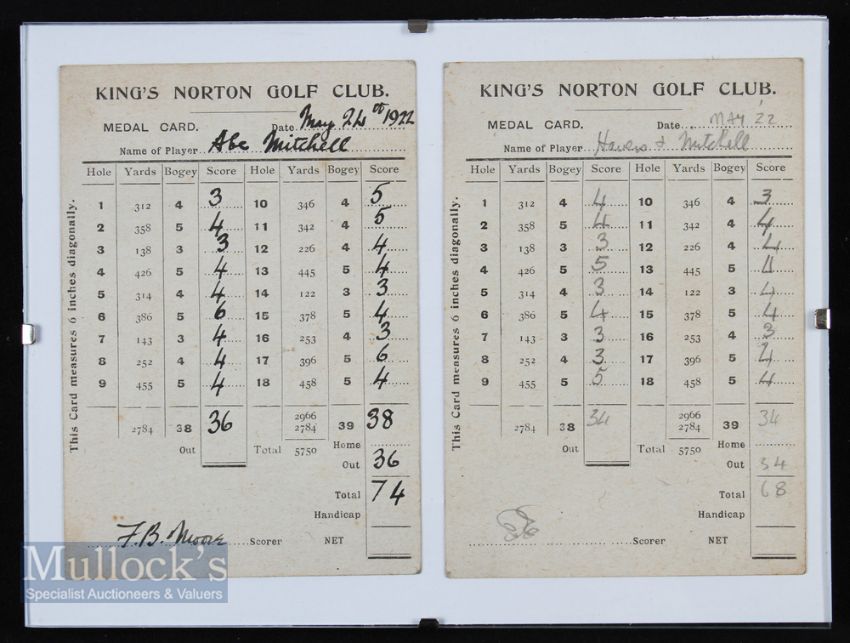 KING'S NORTON GOLF CLUB.
MEDAL CARD. Date May 24th 1922
Name of Player Abe Mitchell
Hole Yards Bogey Score Hole Yards Bogey Score
1 312 4 3 10 346 4 5
2 358 5 4 11 342 4 5
3 138 3 3 12 226 4 4
4 426 5 4 13 445 5 4
5 314 4 4 14 122 3 3
6 386 5 6 15 378 5 4
7 143 3 4 16 253 4 3
8 252 4 4 17 396 5 6
9 455 5 4 18 458 5 4
2784 38 36 2966 39 38
2784
Out Total 5750 Home
Out 36
Total 74
Handicap
F.B. Moore Scorer NET
This Card measures 6 inches diagonally.
KING'S NORTON GOLF CLUB.
MEDAL CARD. Date MAY '22
Name of Player & Mitchell
Hole Yards Bogey Score Hole Yards Bogey Score
1 312 4 4 10 346 4 3
2 358 5 4 11 342 4 4
3 138 3 3 12 226 4 4
4 426 5 5 13 445 5 4
5 314 4 3 14 122 3 4
6 386 5 4 15 378 5 4
7 143 3 3 16 253 4 3
8 252 4 3 17 396 5 4
9 455 5 5 18 458 5 4
2784 38 34 2966 39 34
2784
Out Total 5750 Home
Out 34
Total 68
Handicap
Scorer NET
This Card measures 6 inches diagonally.
Mullock's
Specialist Auctioneers & Valuers